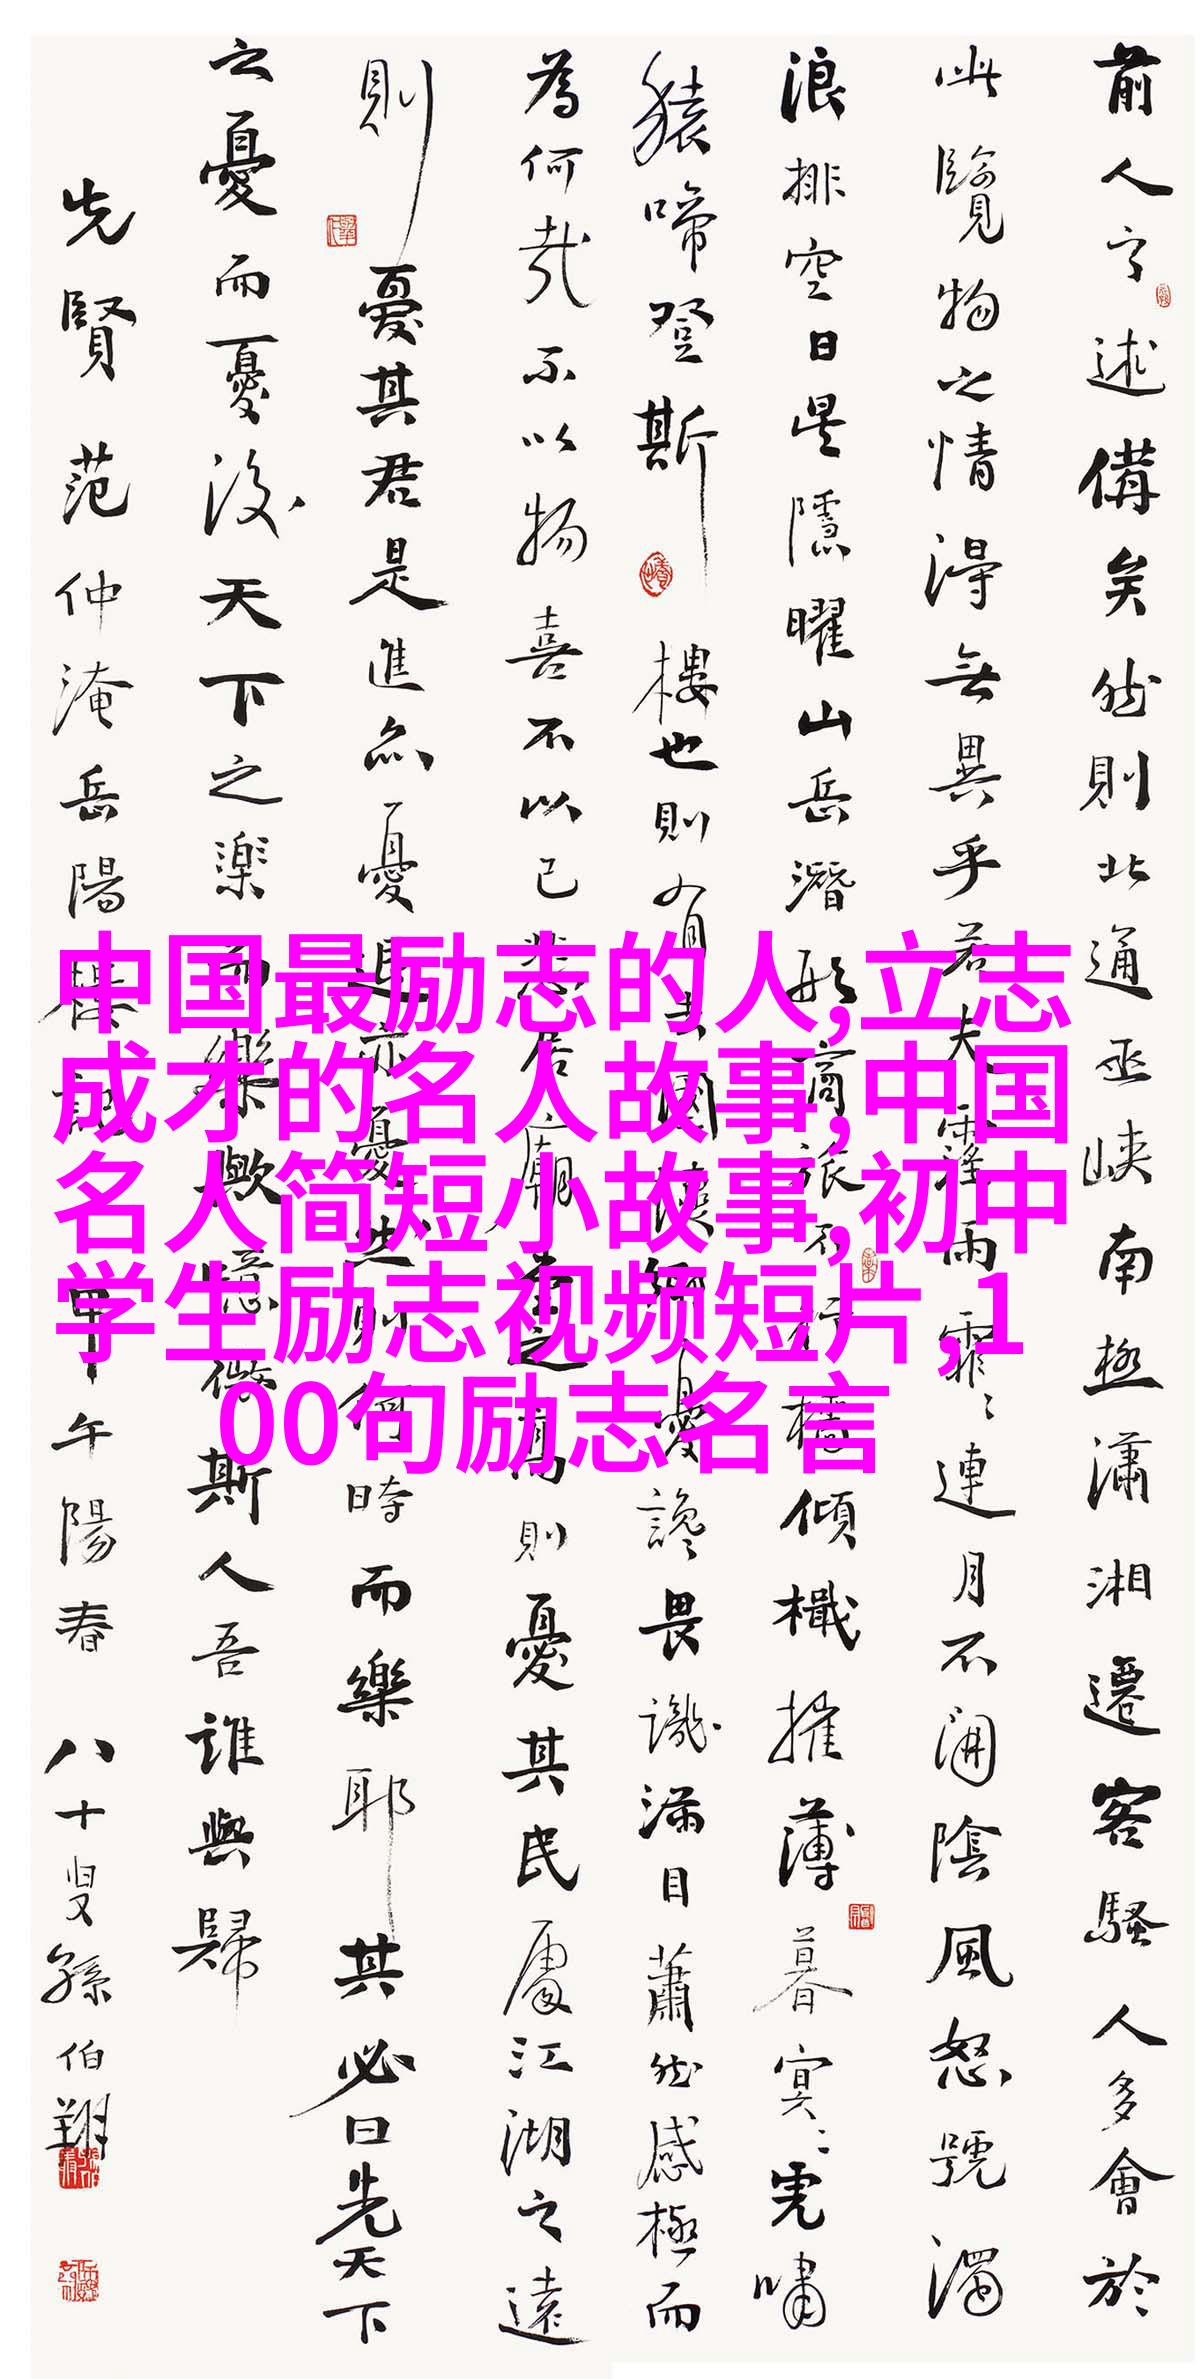 中国最励志的人,立志
成才的名人故事,中国
名人简短小故事,初中
学生励志视频短片,1
00句励志名言
前人之述備矣然則北通巫峽南極瀟湘遷客騷人多會於
此覽物之情得無異乎若夫霪雨霏霏連月不開陰風怒號濁
浪排空日星隱曜山岳潛形商旅不行檣傾檝摧薄暮冥冥虎嘯
猿啼登斯樓也則有去國懷鄉憂讒畏譏滿目蕭然感極而
為何哉不以物喜不以己悲居廟堂之高則憂其民處江湖之遠
則憂其君是進亦憂退亦憂然則何時而樂耶其必曰先天下
之憂而憂後天下之樂而樂歟噫微斯人吾誰與歸
先賢范仲淹岳陽樓記甲午陽春八十叟孫伯翔